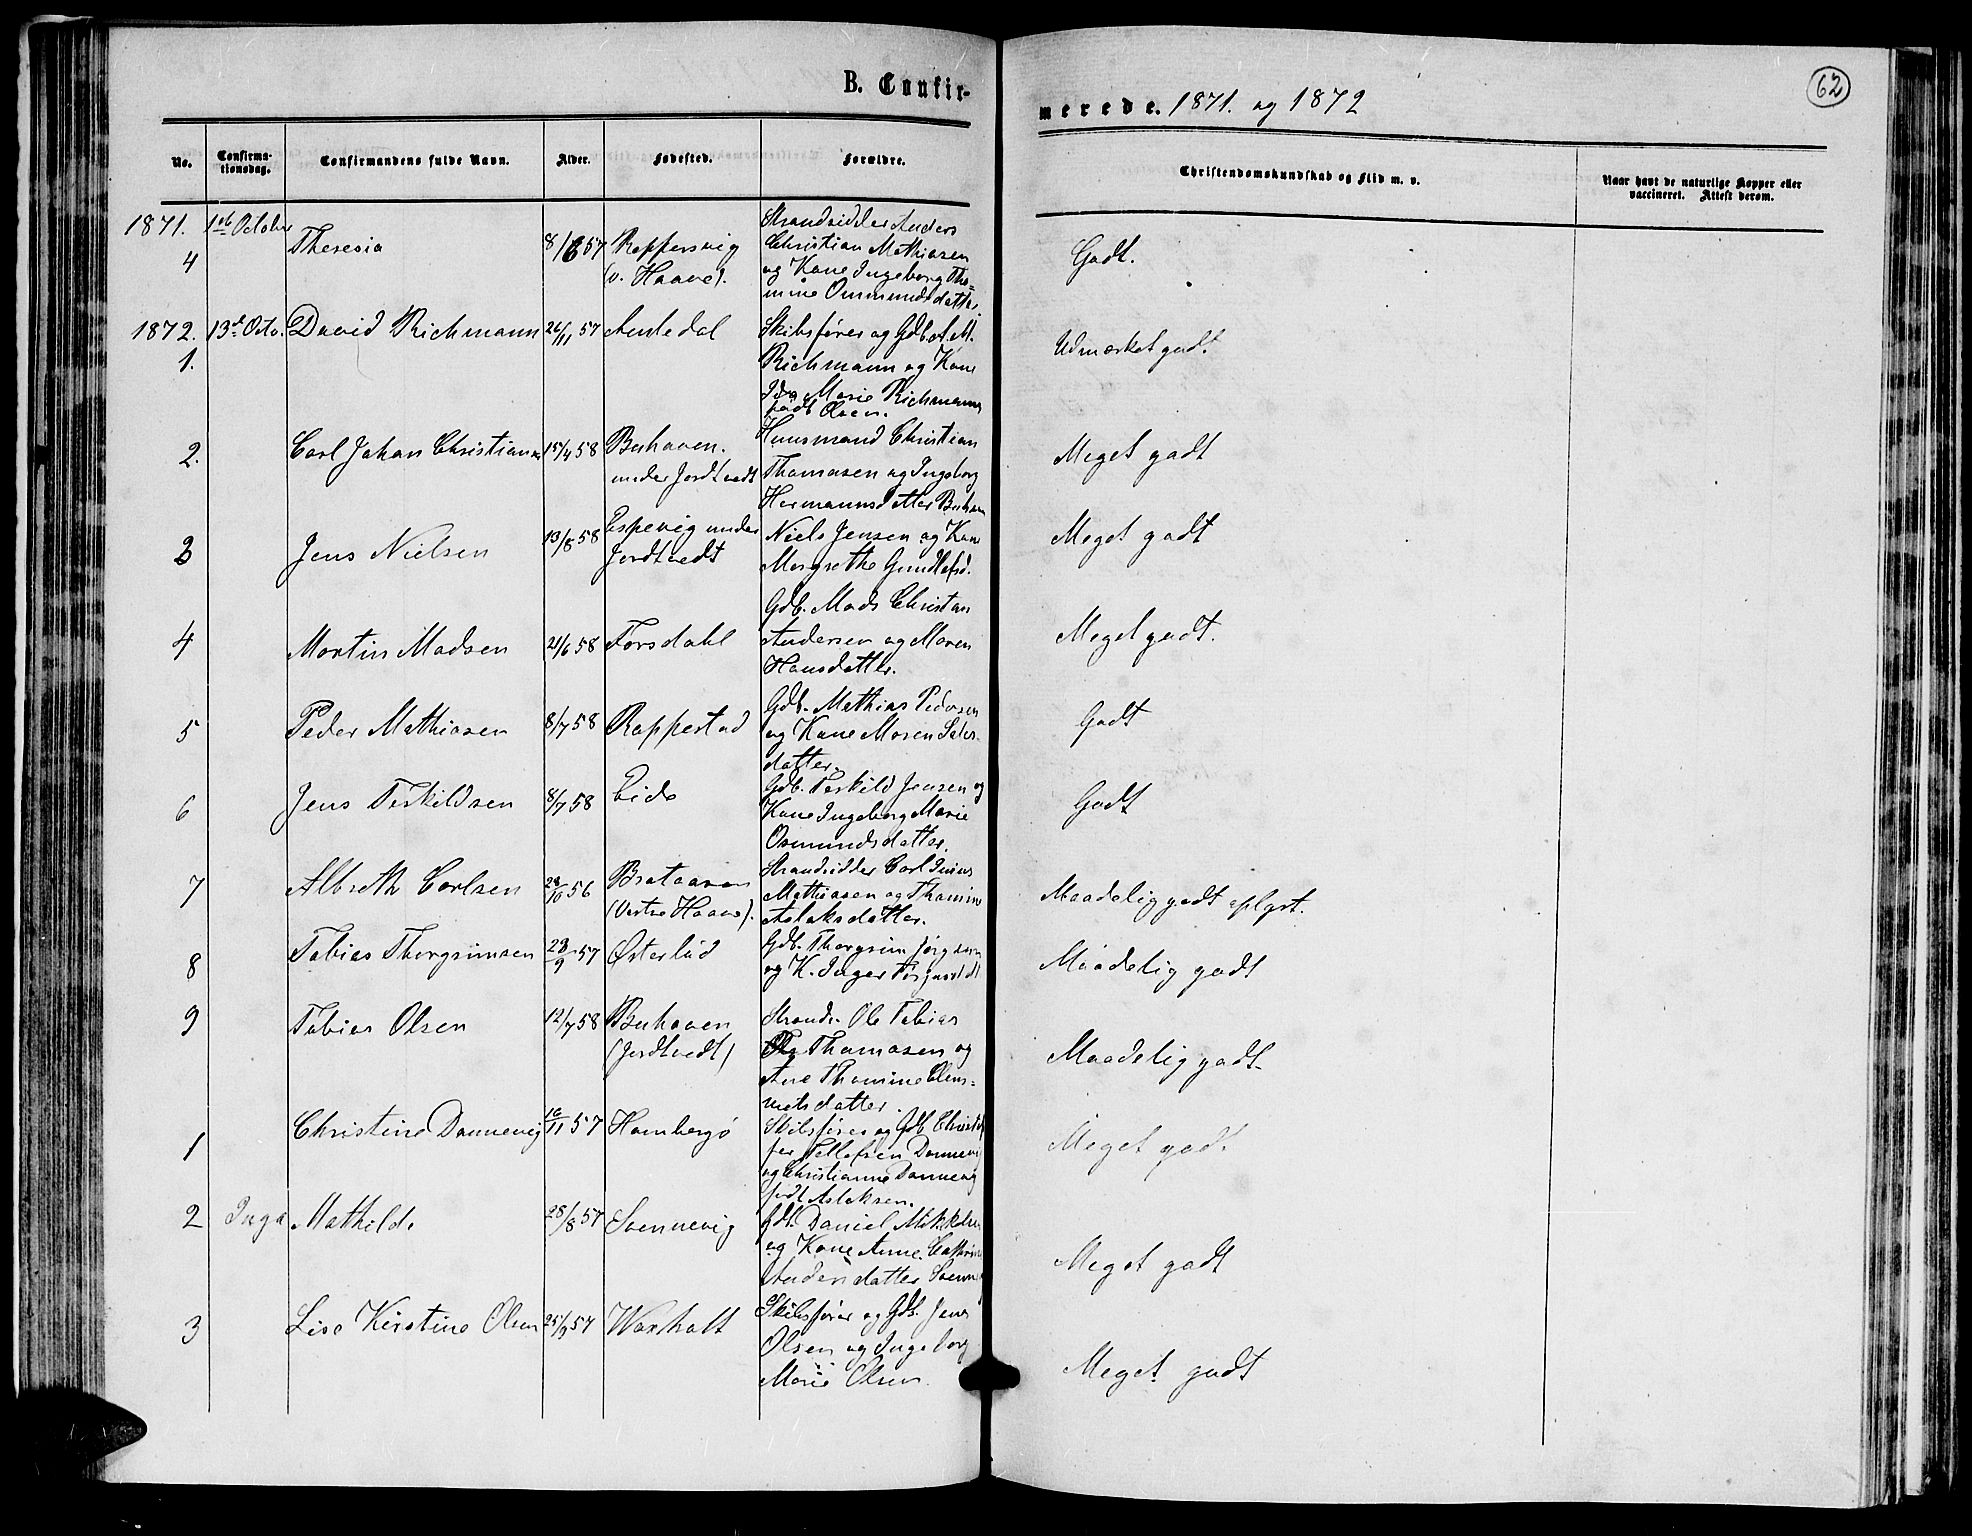 B. Confir-
merede. 1871. og 1872
62
No.
Confirma-
tionsdag.
Confirmandens fulde Navn.
Alder.
Fødested.
Forældre.
Christendomskundskab og Flid m. v.
Naar havt de naturlige Kopper eller
vaccineret. Attest derom.
1871. 1ste October
4 Theresia 8/6 57 Roppersvig
(v. Haave).
Strandsidder Anders
Christian Mathiasen
og Kone Ingeborg Tho-
mine Ommundsdatter.
Godt.
1872. 13de Octo. David Richmann 26/11 57 Amledal
1.
Skibsfører og Gdb. A. M.
Richmann og Kone
Ida Marie Richmann
født Olsen.
Udmærket godt.
2. Carl Johan Christiansen 15/4 58 Buhaven.
under Jordtvedt
Huusmand Christian
Thomasen og Ingeborg
Hermannsdatter Buhaven
Meget godt
3 Jens Nielsen 13/8 58 Espevig under
Jordtvedt
Niels Jensen og Kone
Margrethe Gundlefsd.
Meget godt
4 Martin Madsen 21/6 58 Forsdahl
Gdb. Mads Christian
Andersen og Maren
Hansdatter.
Meget godt.
5 Peder Mathiasen 8/7 58 Roppestad
Gdb. Mathias Pedersen
og Kone Maren Salve-
datter.
Godt
6 Jens Terkildsen 8/7 58 Eide
Gdb. Terkild Jensen og
Kone Ingeborg Marie
Osmundsdatter.
Godt
7 Albreth Carlsen 28/10 56 Brataaven
(Vestre Haave).
Strandsidder Carl Junius
Mathiasen og Thomine
Aslaksdatter.
Maadelig godt oplyst.
8 Tobias Thorgrimsen 23/9 57 Østerlid
Gdb. Thorgrim Jørgensen
og K. Inger
Maadelig godt
9 Tobias Olsen 12/7 58 Buhaven
(Jordtvedt)
Strands. Ole Tobias
Thomasen og
Ane Thomine Clem-
metsdatter.
Maadelig godt.
1 Christine Dannevig 16/11 57 Hombergø
Skibsfører og Gdb. Christof
fer Tellefsen Dannevig
og Christianne Dannevig
født Aslaksen.
Meget godt
2 Inga Mathilde 28/8 57 Svennevig
Gdb. Daniel Mikkelsen
og Kone Anne Cathrine
Andersdatter Svennevig
Meget godt
3 Lise Kirstine Olsen 25/9 57 Waxholt
Skibsfører og Gdb. Jens
Olsen og Ingeborg
Marie Olsen.
Meget godt